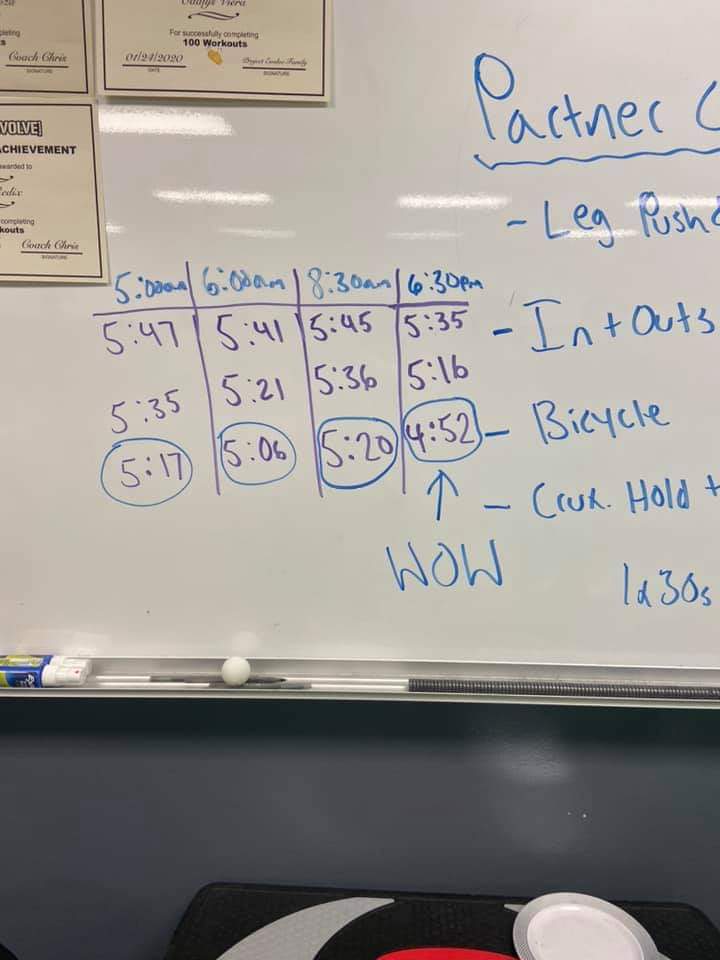 pleting
Coach Chris
SIGNATURE
Viera
For successfully completing
100 Workouts
01/24/2020
DATE
Project Evolve Family
SIGNATURE
VOLVE
ACHIEVEMENT
warded to
completing
kouts
Coach Chris
SIGNATURE
Partner C
- Leg Push
- In + Outs
- Bicycle
- Crux. Hold +
1x30s
5:00am 6:00am 8:30am 6:30pm
5:47 5:41 5:45 5:35
5:35 5:21 5:36 5:16
5:17 5:06 5:20 4:52
↑
WOW